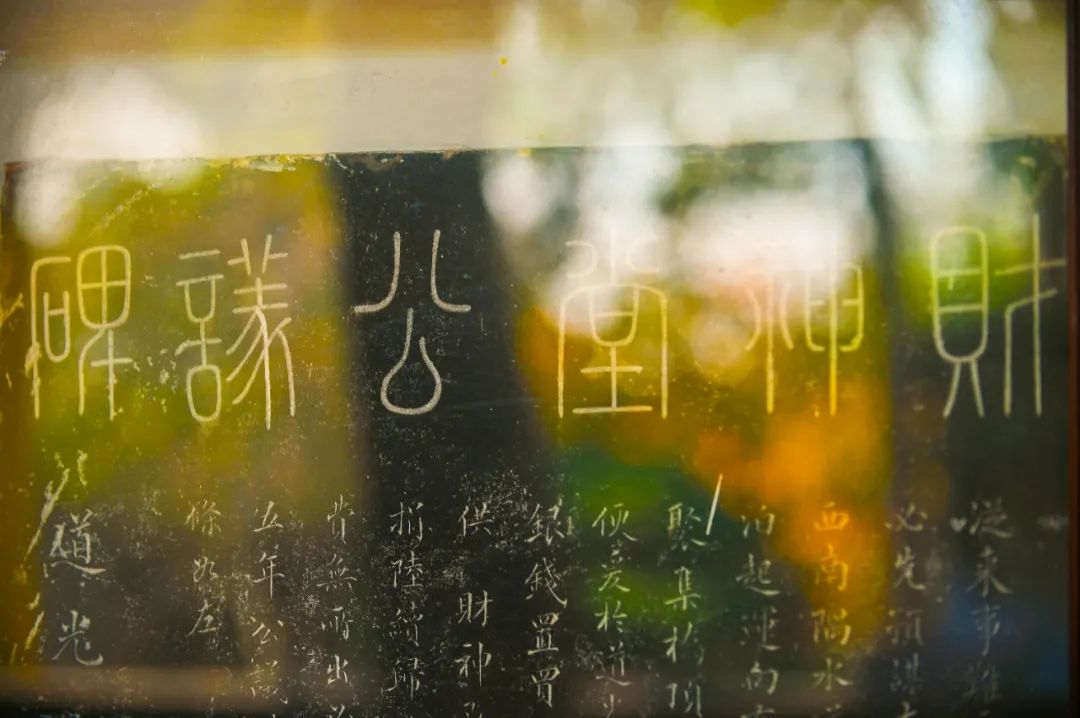 財神堂公議碑
從來事難
必先須謀
西南隅水
泊起運向
聚集於頂
便爰於道光
銀錢置買
供財神
捐陸續歸
費無所出
五年公議
條如左
道光